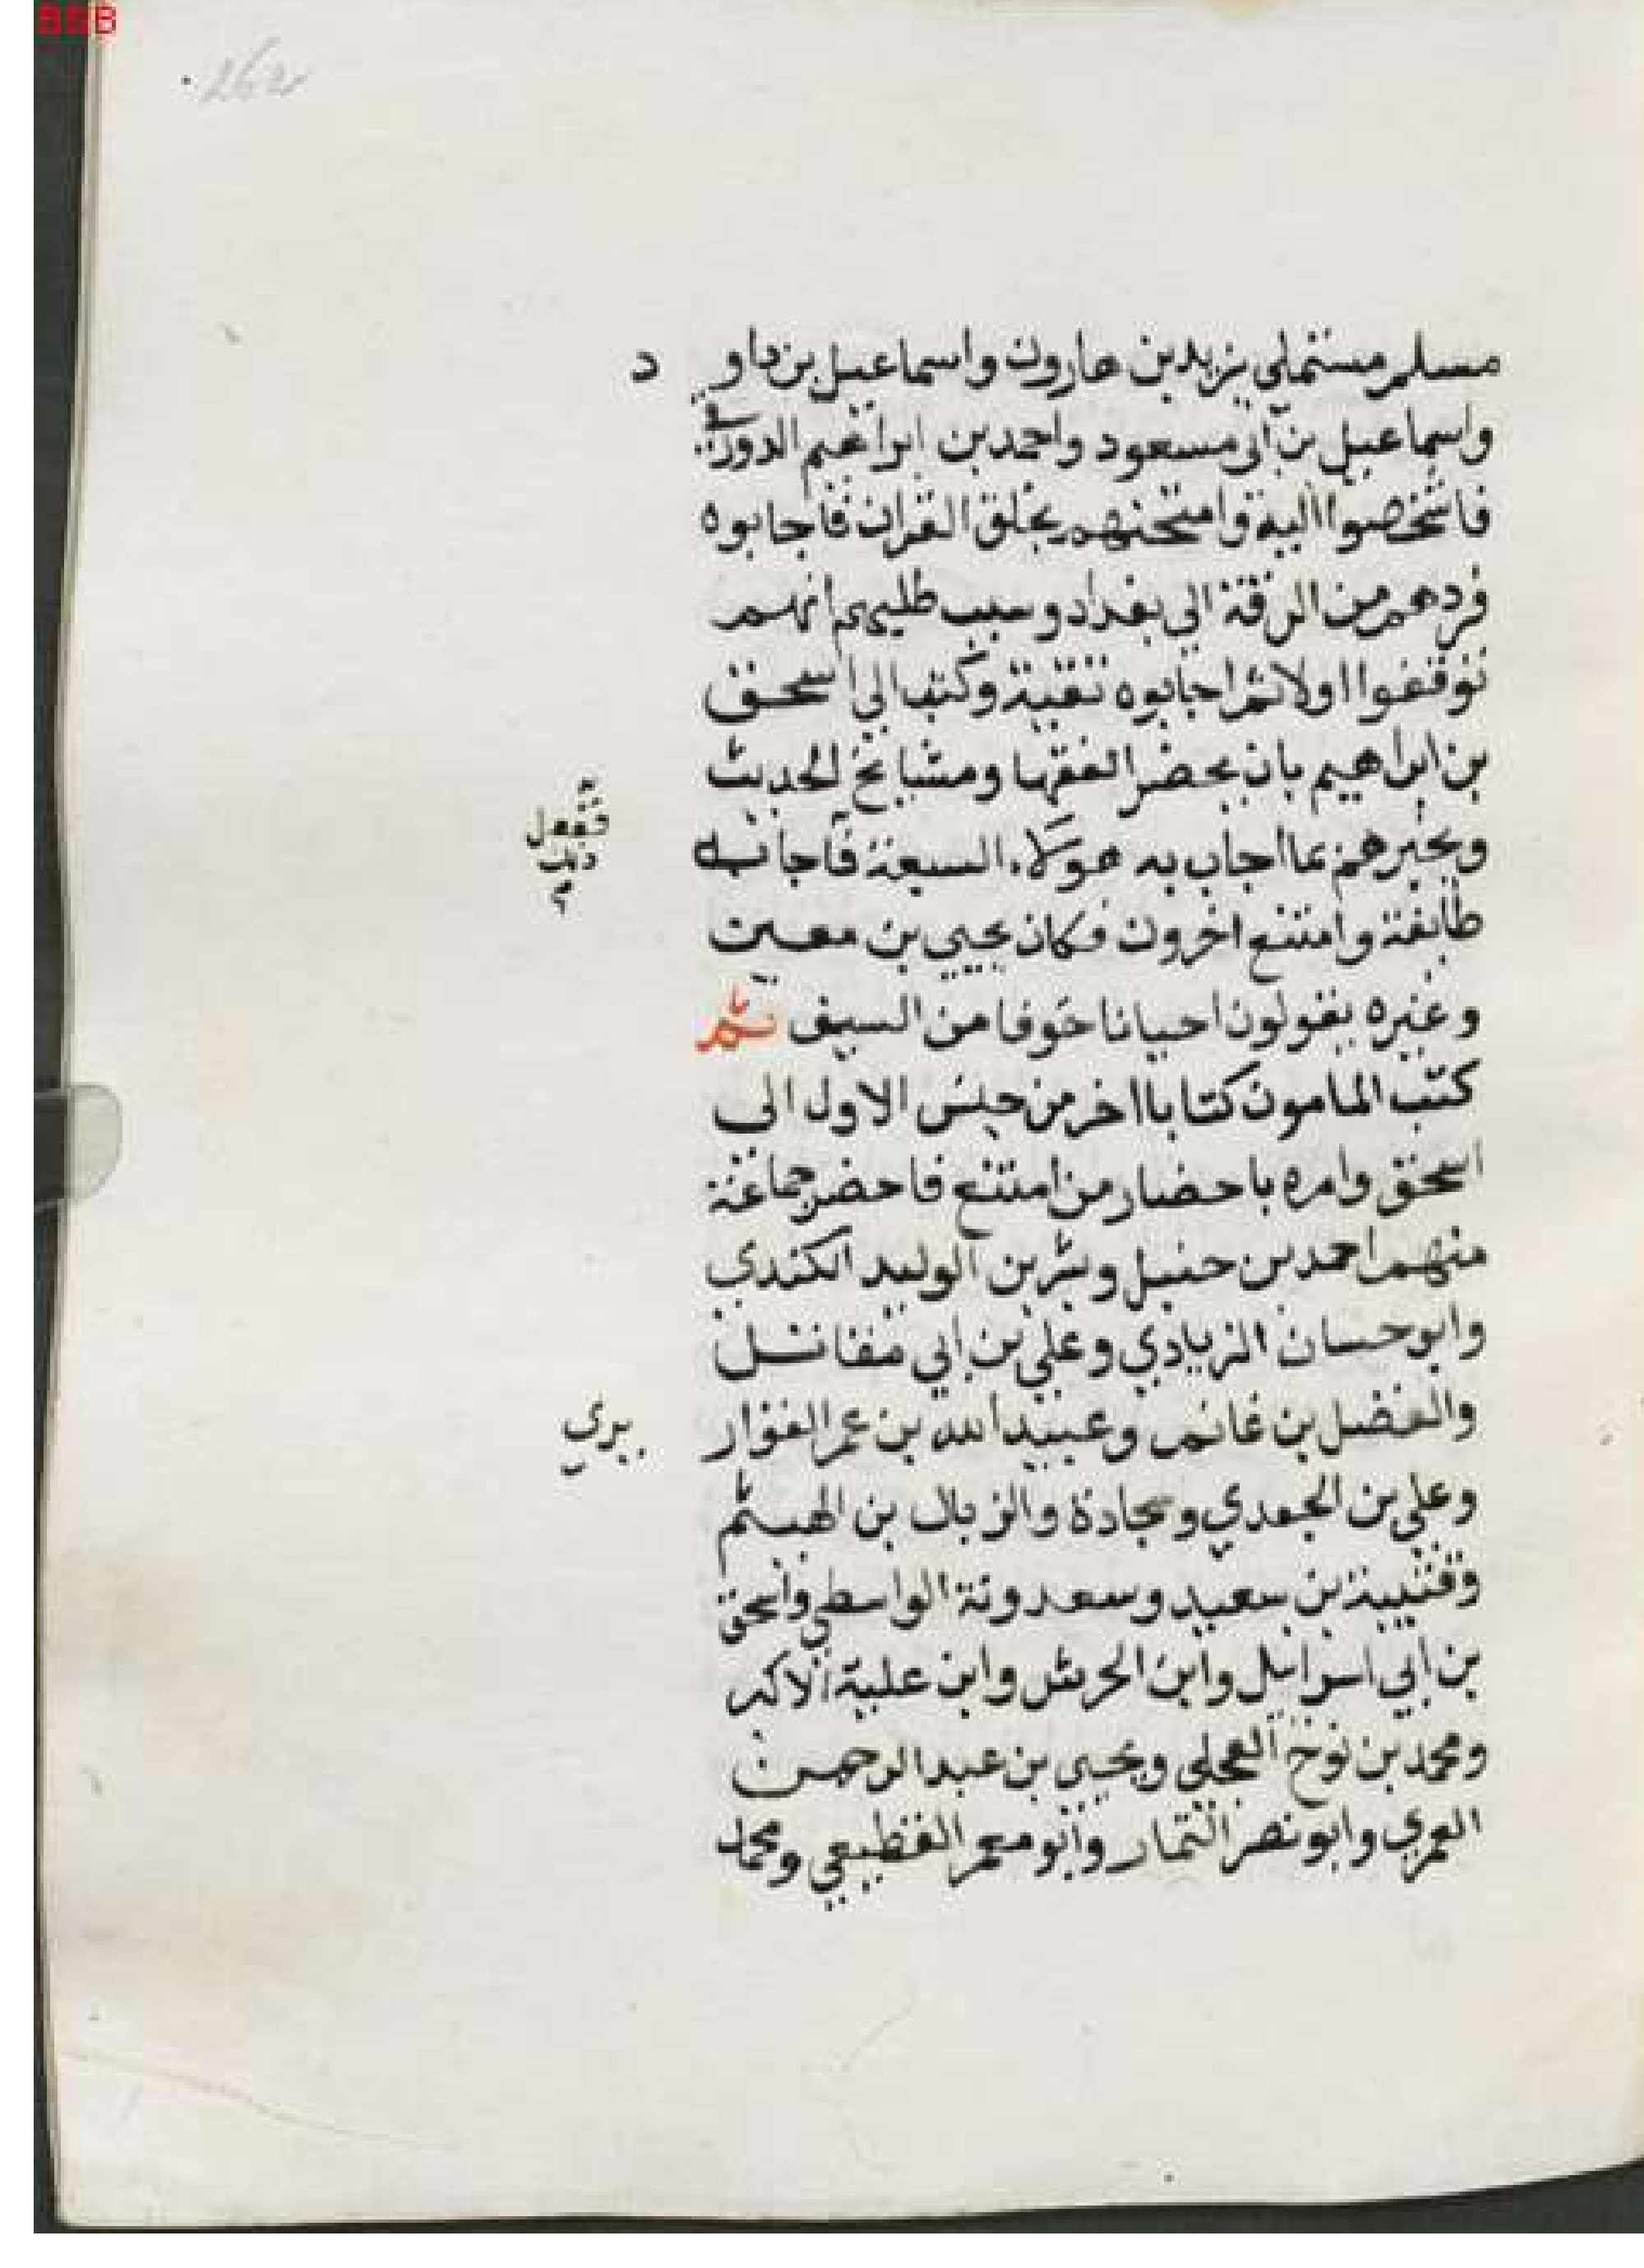 مسلم مستملي يزيد بن هارون واسماعيل بن داود
واسماعيل بن ابي مسعود واحمد بن ابراهيم الدورقي
فاشخصوا اليه وامتحنهم بخلق القران فاجابوه
فردهم من الرقة الي بغداد وسبب طلبهم انهم
توقفوا اولا ثم اجابوه تقية وكتب الي اسحق
بن ابراهيم بان يحضر الفقها ومشايخ الحديث
ويخبرهم بما اجاب به هولاء السبعة فاجابه
ففعل ذلك
طايفة وامتنع اخرون فكان يحيي بن معين
وغيره يقولون احيانا خوفا من السيف ثم
كتب المامون كتابا اخر من جنس الاول الي
اسحق وامره باحضار من امتنع فاحضر جماعة
منهم احمد بن حنبل وبشر بن الوليد الكندي
وابو حسان الزيادي وعلي بن ابي مقاتل
والفضل بن غانم وعبيد الله بن عمر القوار
يري
وعلي بن الجعدي وسجادة والزيال بن الهيثم
وقتيبة بن سعيد وسعدونة الواسطي واسحق
بن ابي اسرايل وابن الحرش وابن علية الاكبر
ومحمد بن نوح العجلي ويحيي بن عبد الرحمن
العمري وابو نصر التمار وابو معمر القطيعي ومحمد